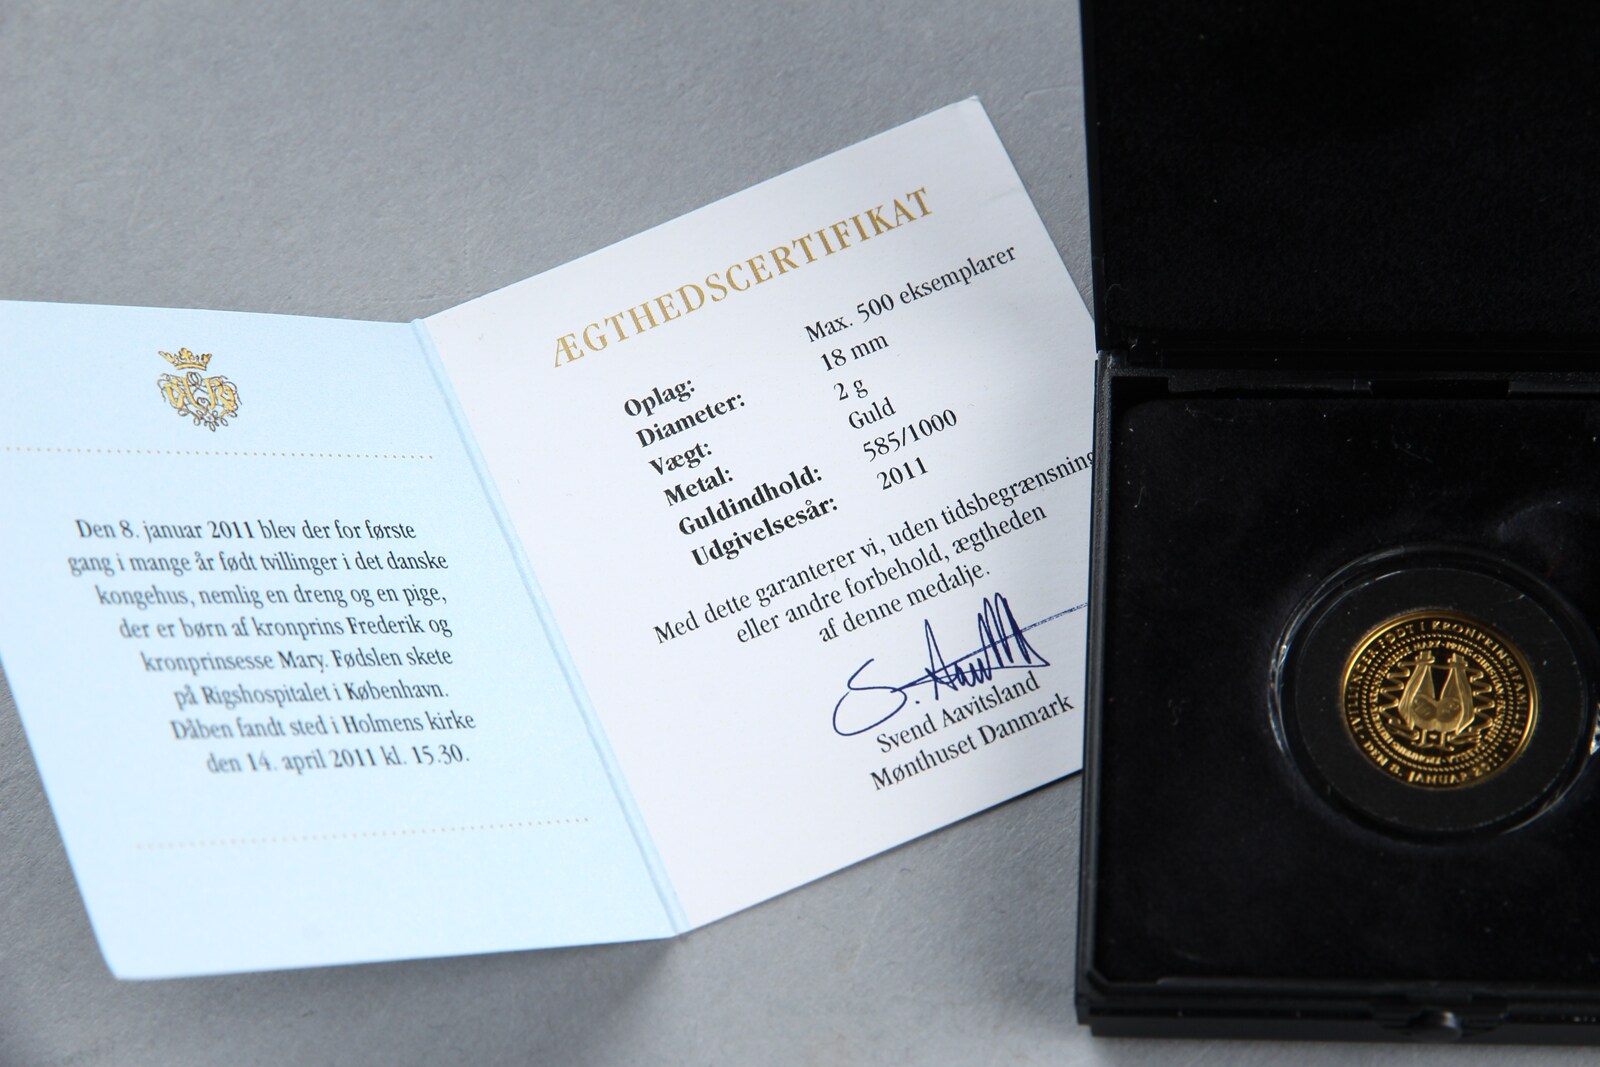 Den 8. januar 2011 blev der for første
gang i mange år født tvillinger i det danske
kongehus, nemlig en dreng og en pige,
der er børn af kronprins Frederik og
kronprinsesse Mary. Fødslen skete
på Rigshospitalet i København.
Dåben fandt sted i Holmens kirke
den 14. april 2011 kl. 15.30.
ÆGTHEDSCERTIFIKAT
Oplag: Max. 500 eksemplarer
Diameter: 18 mm
Vægt: 2 g
Metal: Guld
Guldindhold: 585/1000
Udgivelsesår: 2011
Med dette garanterer vi, uden tidsbegrænsning
eller andre forbehold, ægtheden
af denne medalje.
Svend Aavitsland
Mønthuset Danmark
TVILLINGER FØDT I KRONPRINSEFAMILIEN
DEN 8. JANUAR 2011